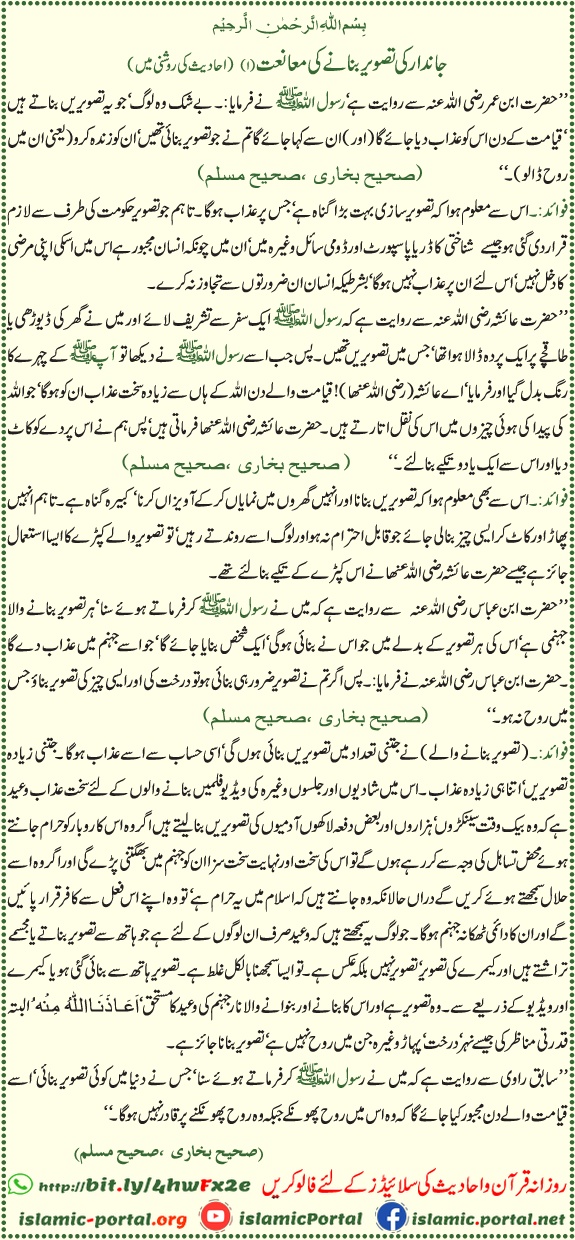 بِسْمِ اللهِ الرَّحْمٰنِ الرَّحِيْمِ
جاندار کی تصویر بنانے کی ممانعت (۱) (احادیث کی روشنی میں)
’’حضرت ابن عمر رضی اللہ عنہ سے روایت ہے‘ رسول اللہ ﷺ نے فرمایا:۔ بے شک وہ لوگ‘ جو یہ تصویریں بناتے ہیں
‘ قیامت کے دن اس کو عذاب دیا جائے گا (اور) ان سے کہا جائے گا تم نے جو تصویر بنائی تھیں‘ ان کو زندہ کرو (یعنی ان میں
روح ڈالو)۔‘‘ (صحیح بخاری ،صحیح مسلم)
فوائد:۔ اس سے معلوم ہوا کہ تصویر سازی بہت بڑا گناہ ہے‘ جس پر عذاب ہوگا۔ تاہم جو تصویر حکومت کی طرف سے لازم
قرار دی گئی ہو جیسے شناختی کا ڈر یا پاسپورٹ اور ڈومی سائل وغیرہ میں‘ ان میں چونکہ انسان مجبور ہے اس میں اسکی اپنی مرضی
کا دخل نہیں‘ اس لئے ان پر عذاب نہیں ہوگا‘ بشرطیکہ انسان ان ضرورتوں سے تجاوز نہ کرے۔
’’حضرت عائشہ رضی اللہ عنہ سے روایت ہے کہ رسول اللہ ﷺ ایک سفر سے تشریف لائے اور میں نے گھر کی ڈیوڑھی یا
طاقچے پر ایک پردہ ڈالا ہوا تھا‘ جس میں تصویریں تھیں۔ پس جب اسے رسول اللہ ﷺ نے دیکھا تو آپ ﷺ کے چہرے کا
رنگ بدل گیا اور فرمایا‘ اے عائشہ (رضی اللہ عنھا)! قیامت والے دن اللہ کے ہاں سے زیادہ سخت عذاب ان کو ہوگا‘ جو اللہ
کی پیدا کی ہوئی چیزوں میں اس کی نقل اتارتے ہیں۔ حضرت عائشہ رضی اللہ عنھا فرماتی ہیں‘ پس ہم نے اس پردے کو کاٹ
دیا اور اس سے ایک یا دو تکیے بنا لئے۔‘‘ (صحیح بخاری ،صحیح مسلم)
فوائد:۔ اس سے بھی معلوم ہوا کہ تصویریں بنانا اور انہیں گھروں میں نمایاں کر کے آویزاں کرنا‘ کبیرہ گناہ ہے۔ تاہم انہیں
پھاڑ اور کاٹ کر ایسی چیز بنا لی جائے جو قابل احترام نہ ہو اور لوگ اسے روندتے رہیں‘ تو تصویر والے کپڑے کا ایسا استعمال
جائز ہے جیسے حضرت عائشہ رضی اللہ عنھا نے اس کپڑے کے تکیے بنا لئے تھے۔
’’حضرت ابن عباس رضی اللہ عنہ سے روایت ہے کہ میں نے رسول اللہ ﷺ کر فرماتے ہوئے سنا‘ ہر تصویر بنانے والا
جہنمی ہے‘ اس کی ہر تصویر کے بدلے میں جو اس نے بنائی ہوگی‘ ایک شخص بنایا جائے گا‘ جو اسے جہنم میں عذاب دے گا
۔ حضرت ابن عباس رضی اللہ عنہ نے فرمایا:۔ پس اگر تم نے تصویر ضرور ہی بنائی ہو تو درخت کی اور ایسی چیز کی تصویر بناؤ جس
میں روح نہ ہو۔‘‘ (صحیح بخاری ،صحیح مسلم)
فوائد:۔ (تصویر بنانے والے) نے جتنی تعداد میں تصویریں بنائی ہوں گی‘ اسی حساب سے اسے عذاب ہوگا۔ جتنی زیادہ
تصویریں‘ اتنا ہی زیادہ عذاب۔ اس میں شادیوں اور جلسوں وغیرہ کی ویڈیو فلمیں بنانے والوں کے لئے سخت عذاب وعید
ہے کہ وہ بیک وقت سینکڑوں‘ ہزاروں اور بعض دفعہ لاکھوں آدمیوں کی تصویریں بنا لیتے ہیں اگر وہ اس کا روبار کو حرام جانتے
ہوئے محض تساہل کی وجہ سے کر رہے ہوں گے تو اس کی سخت اور نہایت سخت سزا ان کو جہنم میں بھگتنی پڑے گی اور اگر وہ اسے
حلال سمجھتے ہوئے کریں گے دراں حالانکہ وہ جانتے ہیں کہ اسلام میں یہ حرام ہے‘ تو وہ اپنے اس فعل سے کافر قرار پائیں
گے اور ان کا دائمی ٹھکانہ جہنم ہوگا۔ جو لوگ یہ سمجھتے ہیں کہ وعید صرف ان لوگوں کے لئے ہے جو ہاتھ سے تصویر بناتے یا مجسمے
تراشتے ہیں اور کیمرے کی تصویر‘ تصویر نہیں بلکہ عکس ہے۔ تو ایسا سمجھنا بالکل غلط ہے۔ تصویر ہاتھ سے بنائی گئی ہو یا کیمرے
اور ویڈیو کے ذریعے سے۔ وہ تصویر ہے اور اس کا بنانے اور بنوانے والا نار جہنم کی وعید کا مستحق‘ اَعَاذَنَا اللہُ مِنْہُ‘ البتہ
قدرتی مناظر کی جیسے نہر‘ درخت‘ پہاڑ وغیرہ جن میں روح نہیں ہے‘ تصویر بنانا جائز ہے۔
’’سابق راوی سے روایت ہے کہ میں نے رسول اللہ ﷺ کر فرماتے ہوئے سنا‘ جس نے دنیا میں کوئی تصویر بنائی‘ اسے
قیامت والے دن مجبور کیا جائے گا کہ وہ اس میں روح پھونکے جبکہ وہ روح پھونکنے پر قادر نہیں ہوگا۔‘‘
(صحیح بخاری ،صحیح مسلم)
روزانہ قرآن و احادیث کی سلائیڈز کے لئے فالو کریں http://bit.ly/4hwFx2e
islamic-portal.org islamicPortal islamic.portal.net